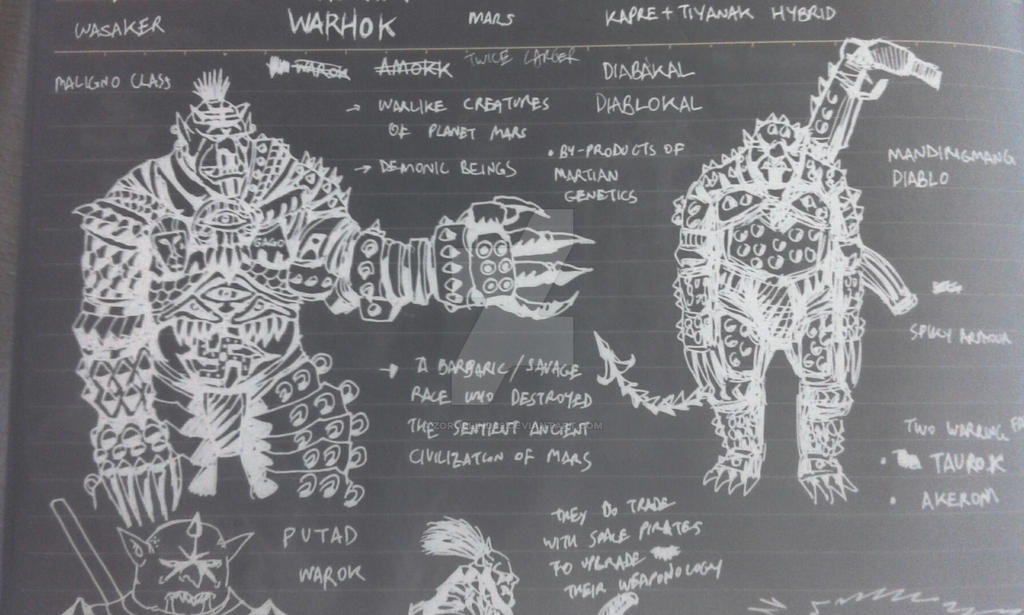 WASAKER
WARHOK
MARS
KAPRE + TIYANAK HYBRID
MALIGNO CLASS
WAROK
AMOKK
TWICE LARGER
DIABAKAL
DIABLOKAL
→ WARLIKE CREATURES
OF PLANET MARS
→ DEMONIC BEINGS
• BY-PRODUCTS OF
MARTIAN
GENETICS
MANDIRIGMANG
DIABLO
GAGO
SPIKY ARMOUR
→ A BARBARIC/SAVAGE
RACE WHO DESTROYED
THE SENTIENT ANCIENT
CIVILIZATION OF MARS
TWO WARRING
• TAUROK
• AKEROM
PUTAD
WAROK
THEY DO TRADE
WITH SPACE PIRATES
TO UPGRADE
THEIR WEAPONOLOGY